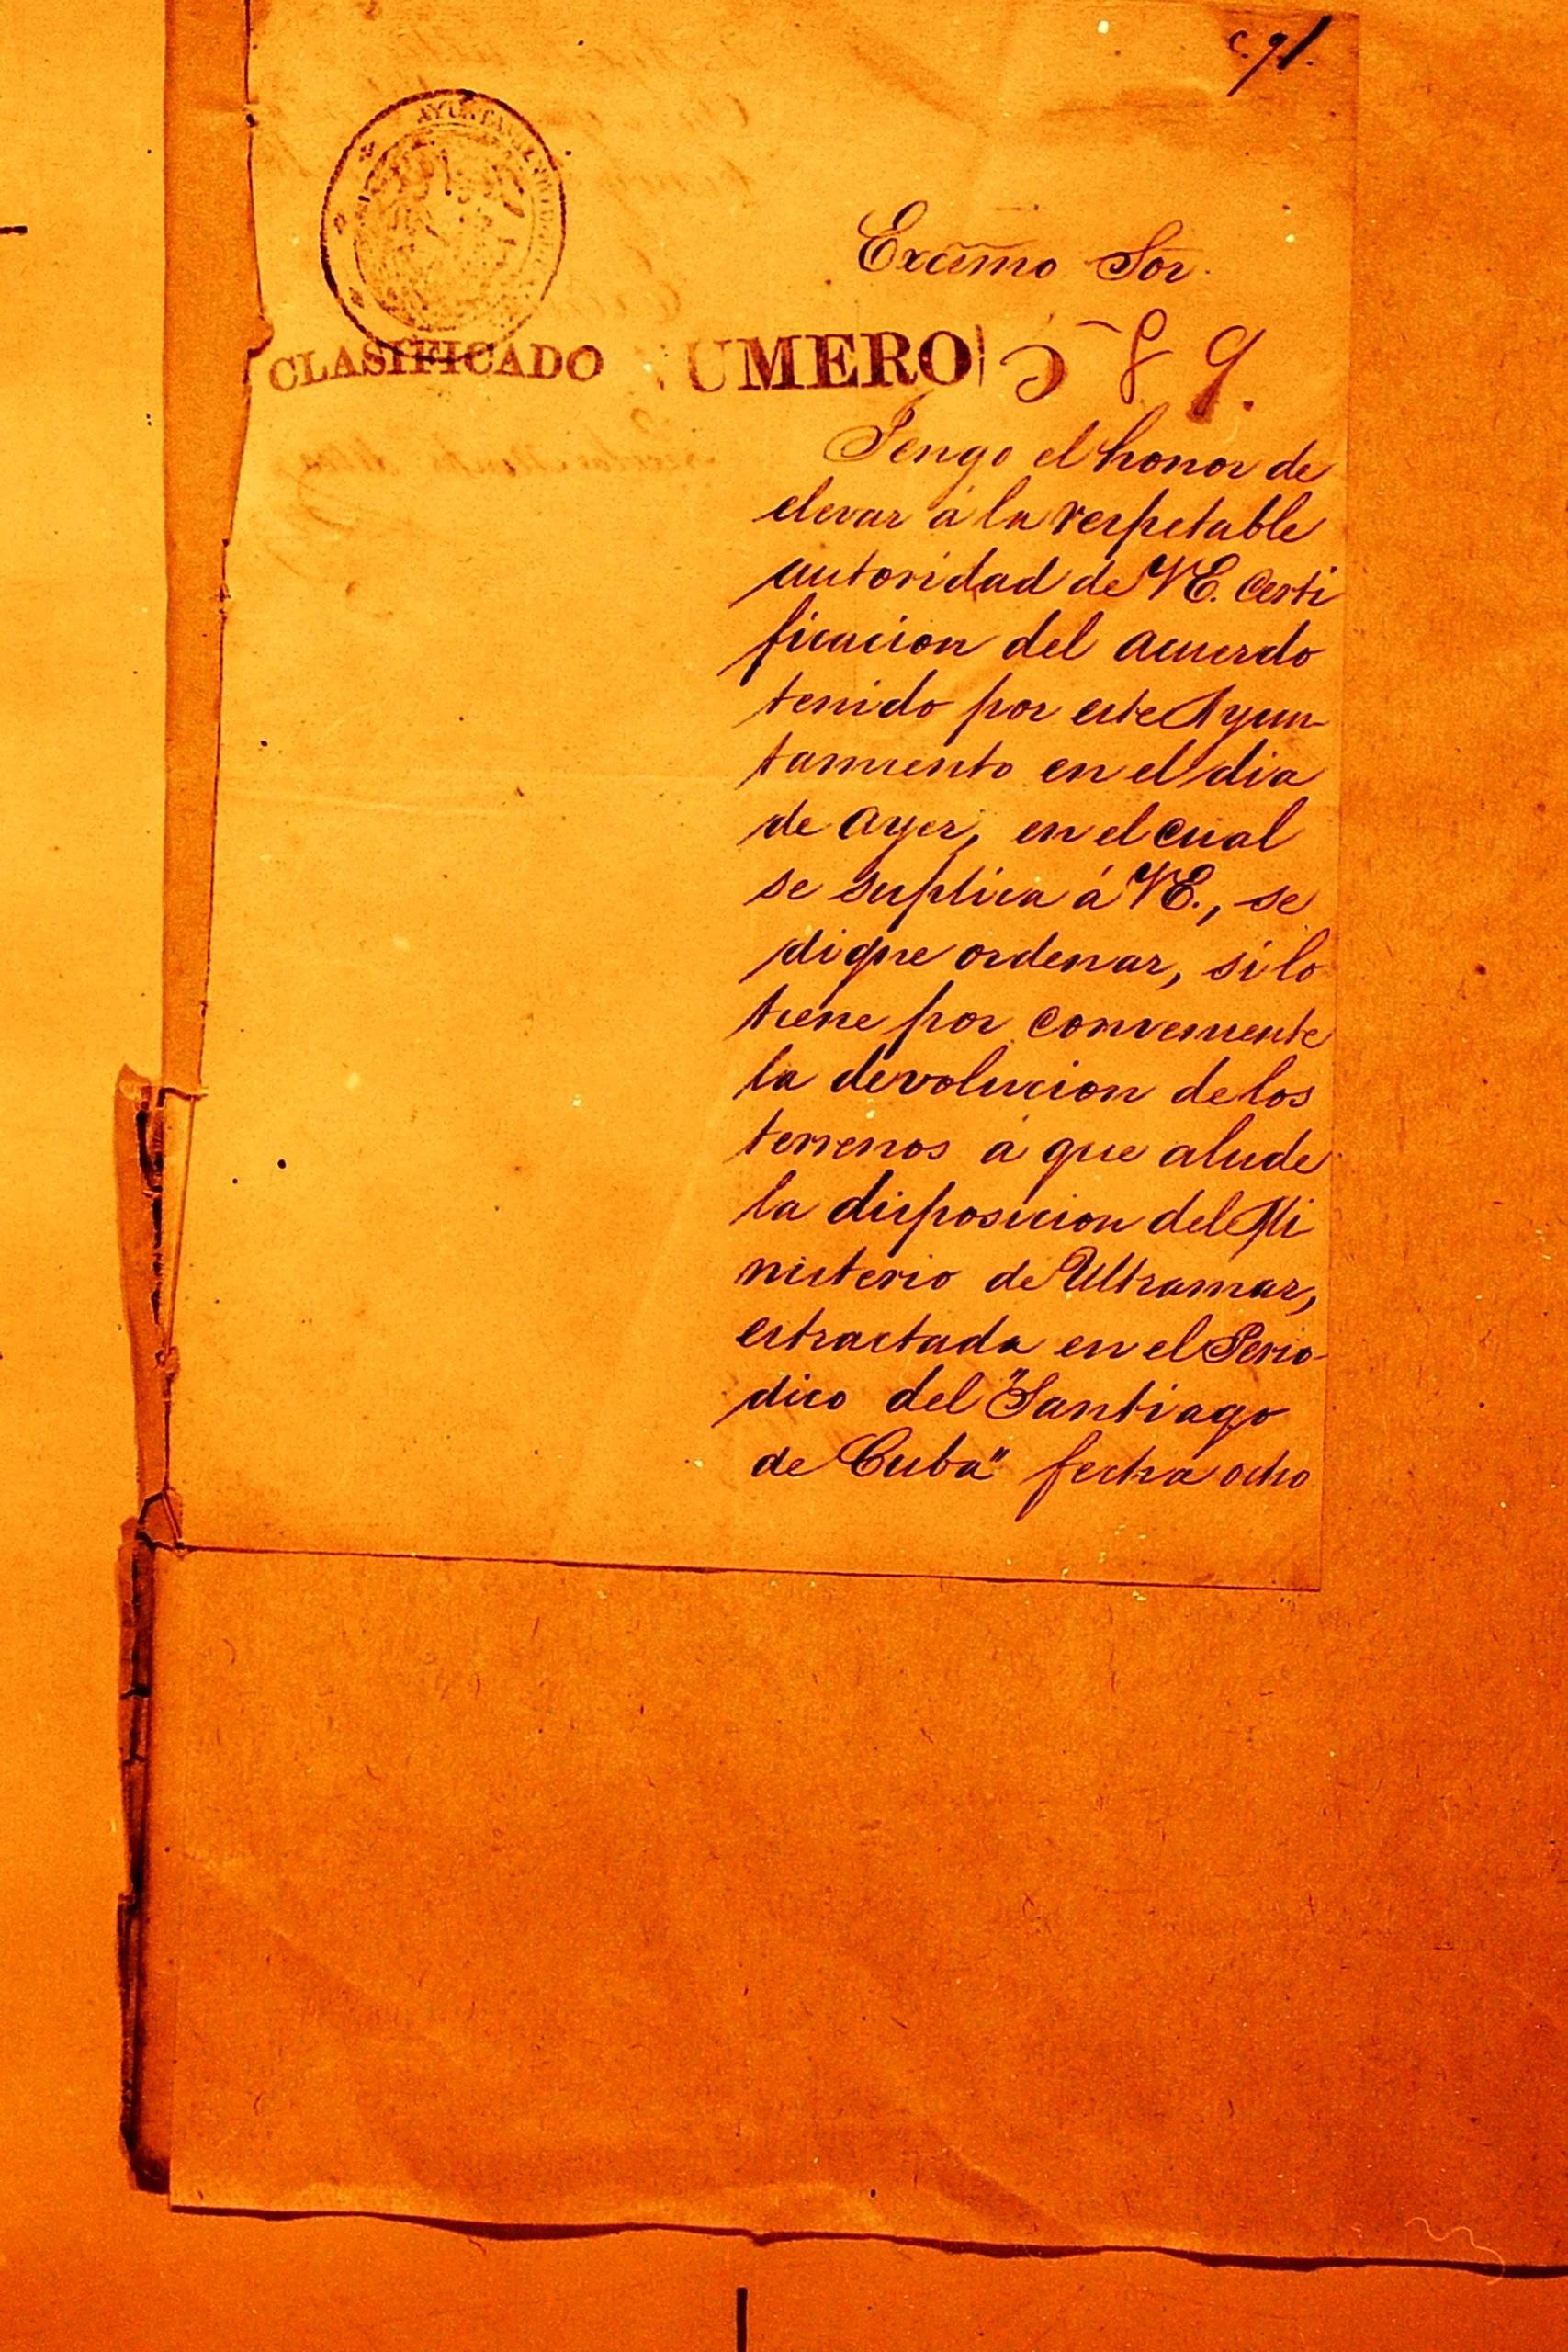 c. 91.
AYUNTAMIENTO
Excmo Sor
CLASIFICADO NUMERO 589.
Tengo el honor de
elevar á la respetable
autoridad de VE. Certi
ficacion del acuerdo
tenido por este Ayun-
tamiento en el dia
de ayer, en el cual
se suplica á VE., se
digne ordenar, si lo
tiene por conveniente
la devolucion de los
terrenos á que alude
la disposicion del Mi
nisterio de Ultramar,
estractada en el Perio-
dico del "Santiago
de Cuba" fecha ocho